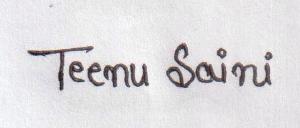 Teenu Saini